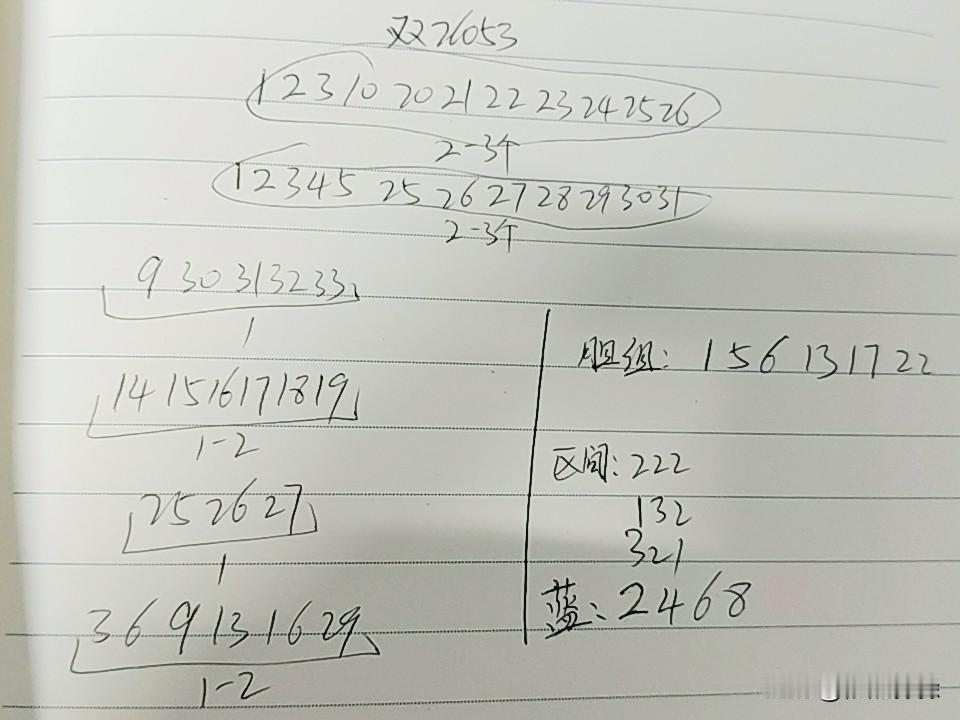 双26053
1 2 3 10 20 21 22 23 24 25 26
2-3个
1 2 3 4 5 25 26 27 28 29 30 31
2-3个
9 30 31 32 33
1
14 15 16 17 18 19
1-2
25 26 27
1
3 6 9 13 16 29
1-2
胆组: 1 5 6 13 17 22
区间: 222
132
321
蓝: 2 4 6 8